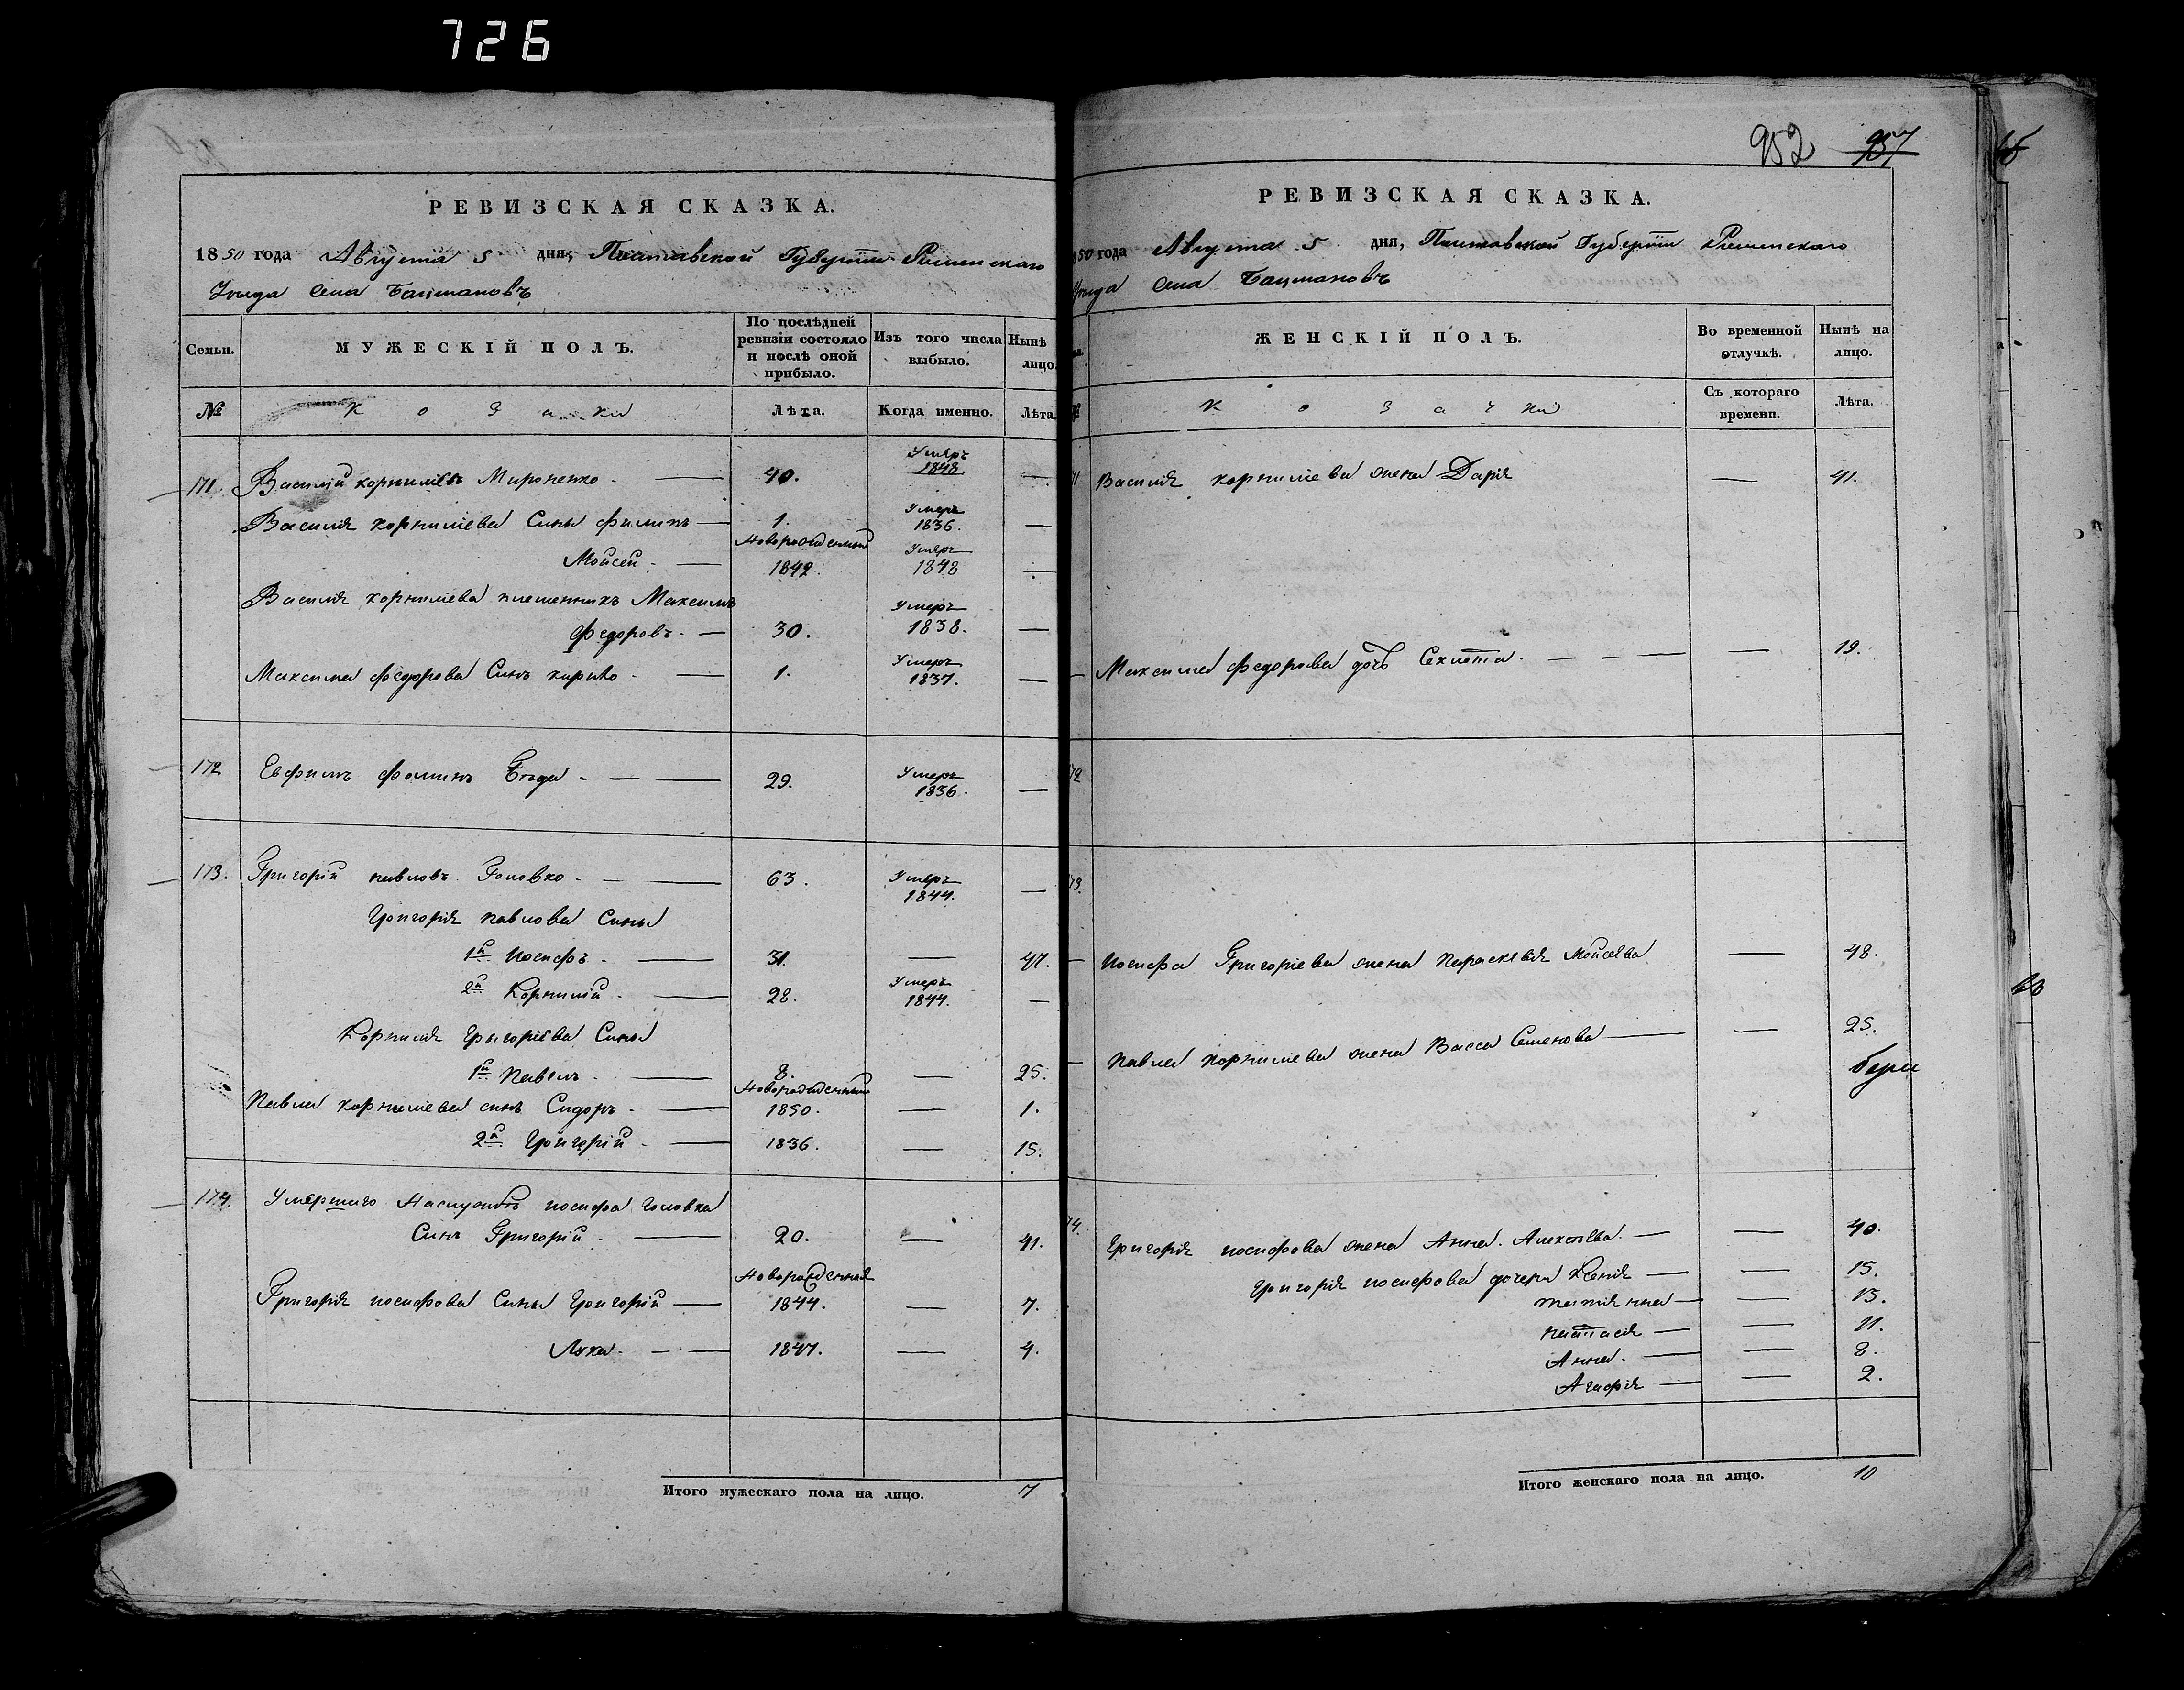 726
РЕВИЗСКАЯ СКАЗКА.
1850 года Августа 5 дня, Полтавской Губернiи Роменскаго
Уѣзда Села Бацмановъ
Семьи.
МУЖЕСКІЙ ПОЛЪ.
По послѣдней ревизіи состояло и послѣ оной прибыло.
Изъ того числа выбыло.
Нынѣ лицо.
№
Козаки
Лѣта.
Когда именно.
Лѣта.
171 Василій Корниліевъ Мироненко - 40. Умеръ 1848. —
Василія Корниліева Сины Филипъ — 1. Умеръ 1836. —
Мойсей - — Новорожденный 1842. Умеръ 1848 —
Василія Корниліева племенникъ Максимъ
Федоровъ - — 30. Умеръ 1838. —
Максима Федорова Синъ Кирило - — 1. Умеръ 1837. —
172 Евфимъ Фоминъ Бѣда - — — 29. Умеръ 1836. —
173. Григорій Павловъ Головко - — — 63. Умеръ 1844. —
Григорія Павлова Сины
1й Иосифъ - — 31. — 47.
2й Корнилій - — 28. Умеръ 1844. —
Корнилія Григоріева Сины
1й Павелъ - — 8. — 25.
Павла Корниліева синъ Сидоръ - — Новорожденный 1850. — 1.
2й Григорій - — 1836. — 15.
174. Умершаго Иосифа Головка
Синъ Григорій - — 20. — 41.
Григорія Иосифова Сины Григорій — Новорожденныя 1844. — 7.
Лука - — — 1847. — 4.
Итого мужескаго пола на лицо. 7
952 957
РЕВИЗСКАЯ СКАЗКА.
50 года Августа 5 дня, Полтавской Губернiи Роменскаго
Уѣзда Села Бацмановъ
ЖЕНСКІЙ ПОЛЪ.
Во временной отлучкѣ.
Нынѣ на лицо.
Козачки
Съ котораго времени.
Лѣта.
71 Василія Корниліева жена Дарія — 41.
Максима Федорова дочь - — — — 19.
72
73.
Иосифа Григоріева жена Параскевія Мойсеева — 48.
Павла Корниліева жена Васса Семенова — — 25.
74. Григорія Иосифова жена Анна Алексѣева - — — 40.
Григорія Иосифова дочери Ксенія — — 15.
Татіянна — — 13.
— — 11.
Анна - — — 8.
Агафія — — 2.
Итого женскаго пола на лицо. 10